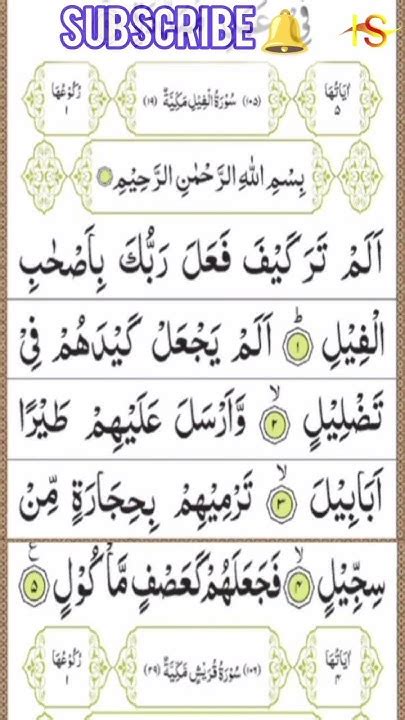 SUBSCRIBE
IS
فِيْ
اٰيَاتُهَا ٥
(١٠٥) سُوْرَةُ الْفِيْلِ مَكِّيَّةٌ (١٩)
رُكُوْعُهَا ١
بِسْمِ اللّٰهِ الرَّحْمٰنِ الرَّحِيْمِ
اَلَمْ تَرَ كَيْفَ فَعَلَ رَبُّكَ بِاَصْحٰبِ
الْفِيْلِ ؕ ١ اَلَمْ يَجْعَلْ كَيْدَهُمْ فِيْ
تَضْلِيْلٍ ۙ ٢ وَّاَرْسَلَ عَلَيْهِمْ طَيْرًا
اَبَابِيْلَ ۙ ٣ تَرْمِيْهِمْ بِحِجَارَةٍ مِّنْ
سِجِّيْلٍ ۙ ۴ فَجَعَلَهُمْ كَعَصْفٍ مَّاْكُوْلٍ ٥ ع
اٰيَاتُهَا ۴
(١٠٦) سُوْرَةُ قُرَيْشٍ مَكِّيَّةٌ (٢٩)
رُكُوْعُهَا ١